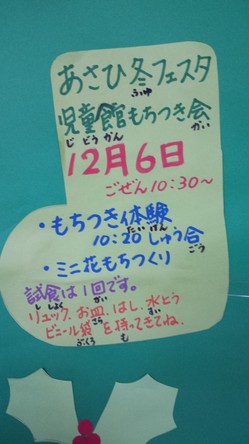 あさひ冬フェスタ
ふゆ
児童館もちつき会
じどうかん かい
12月6日
ごぜん10:30～
・もちつき体験
たいけん
10:20しゅう合
ごう
・ミニ花もちつくり
試食は1回です。
ししょく かい
リュック、お皿、はし、水とう
さら すい
ビニール袋を持ってきてね。
ぶくろ も